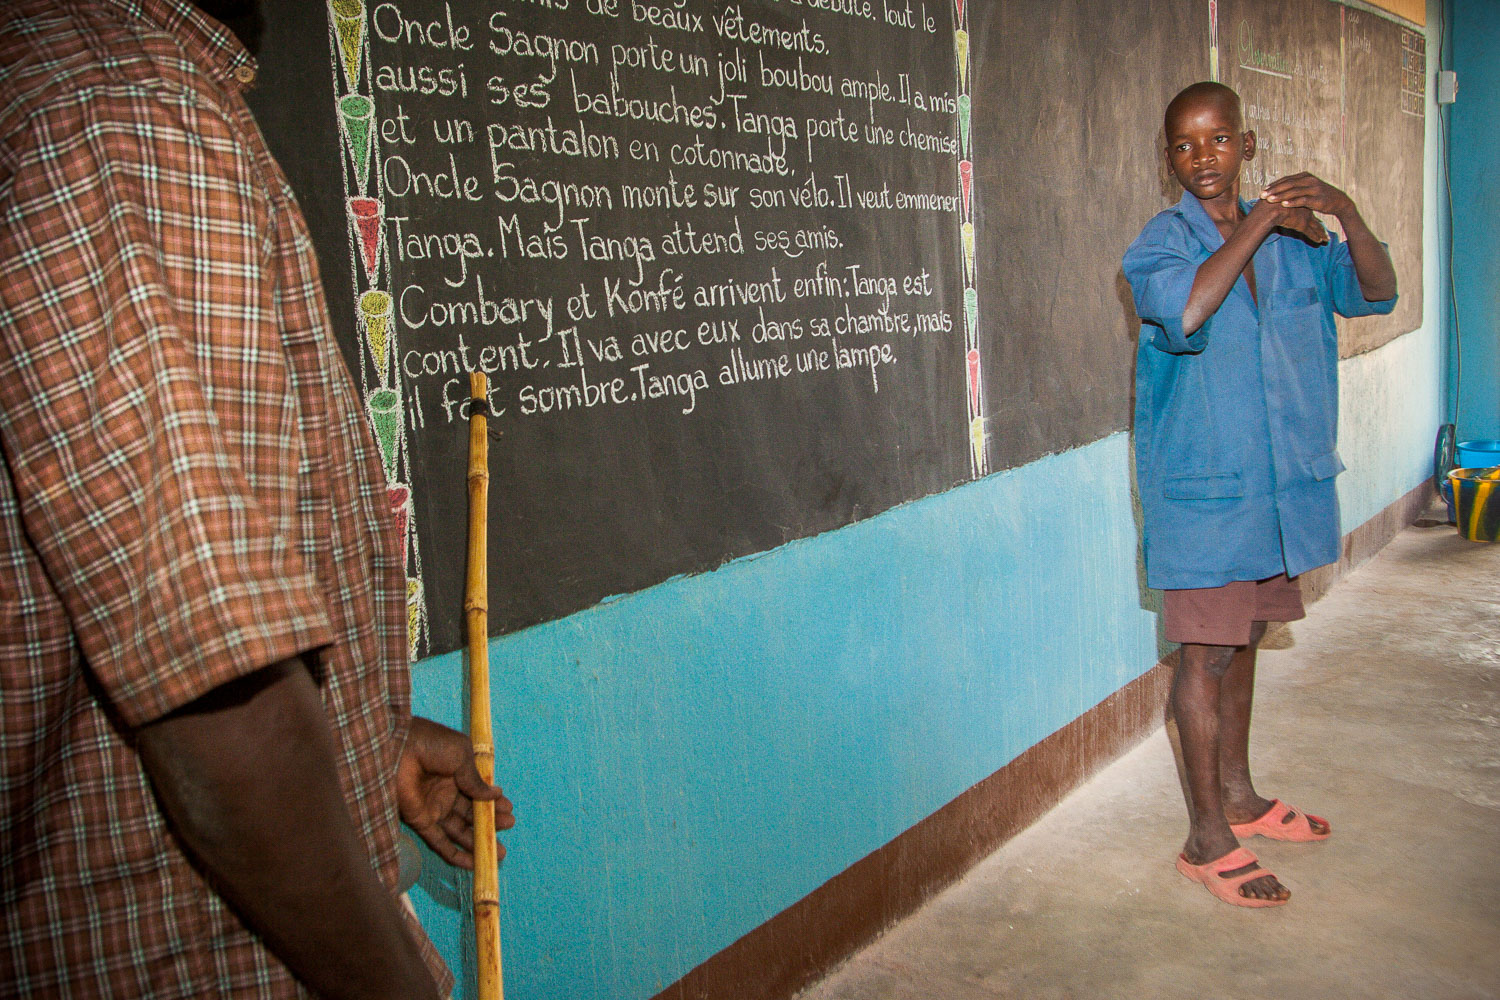 de beaux vêtements.
débute. Tout le
Oncle Sagnon porte un joli boubou ample. Il a mis
aussi ses babouches. Tanga porte une chemise
et un pantalon en cotonnade.
Oncle Sagnon monte sur son vélo. Il veut emmener
Tanga. Mais Tanga attend ses amis.
Combary et Konfé arrivent enfin: Tanga est
content. Il va avec eux dans sa chambre, mais
il fait sombre. Tanga allume une lampe.